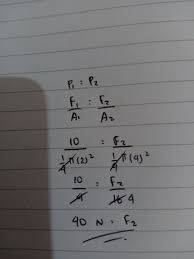 P₁ = P₂
F₁/A₁ = F₂/A₂
10/(1/4 π(2)²) = F₂/(1/4 π(4)²)
10/4 = F₂/16 4
40 N = F₂